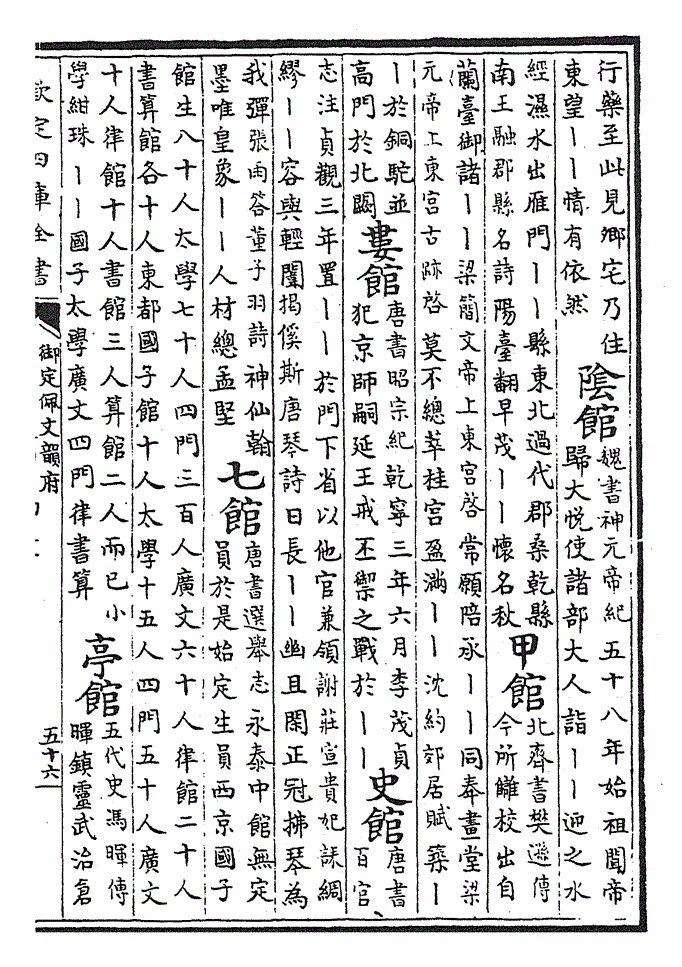 行藥至此見鄉宅乃住
東望——情有依然
陰館
魏書神元帝紀五十八年始祖聞帝
歸大悅使諸部大人詣——迎之水
經濕水出雁門——縣東北過代郡桑乾縣
南王融郡縣名詩陽臺翻早茂——懷名秋
甲館
北齊書樊遜傳
今所讎校出自
蘭臺御諸——梁簡文帝上東宮啓常願陪丞——同奉畫堂梁
元帝上東宮古跡啓莫不總萃桂宮盈滿——沈約郊居賦築—
—於銅駝並
高門於北闕
婁館
唐書昭宗紀乾寧三年六月李茂貞
犯京師嗣延王戒丕禦之戰於——
史館
唐書
百官
志注貞觀三年置——於門下省以他官兼領謝莊宣貴妃誄綢
繆——容與輕闈揭傒斯唐琴詩日長——幽且閑正冠拂琴為
我彈張雨答董子羽詩神仙翰
墨唯皇象——人材總孟堅
七館
唐書選舉志永泰中館無定
員於是始定生員西京國子
館生八十人太學七十人四門三百人廣文六十人律館二十人
書算館各十人東都國子館十人太學十五人四門五十人廣文
十人律館十人書館三人算館二人而已小
學紺珠——國子太學廣文四門律書算
亭館
五代史馮暉傳
暉鎮靈武治倉
欽定四庫全書
御定佩文韻府
五十六